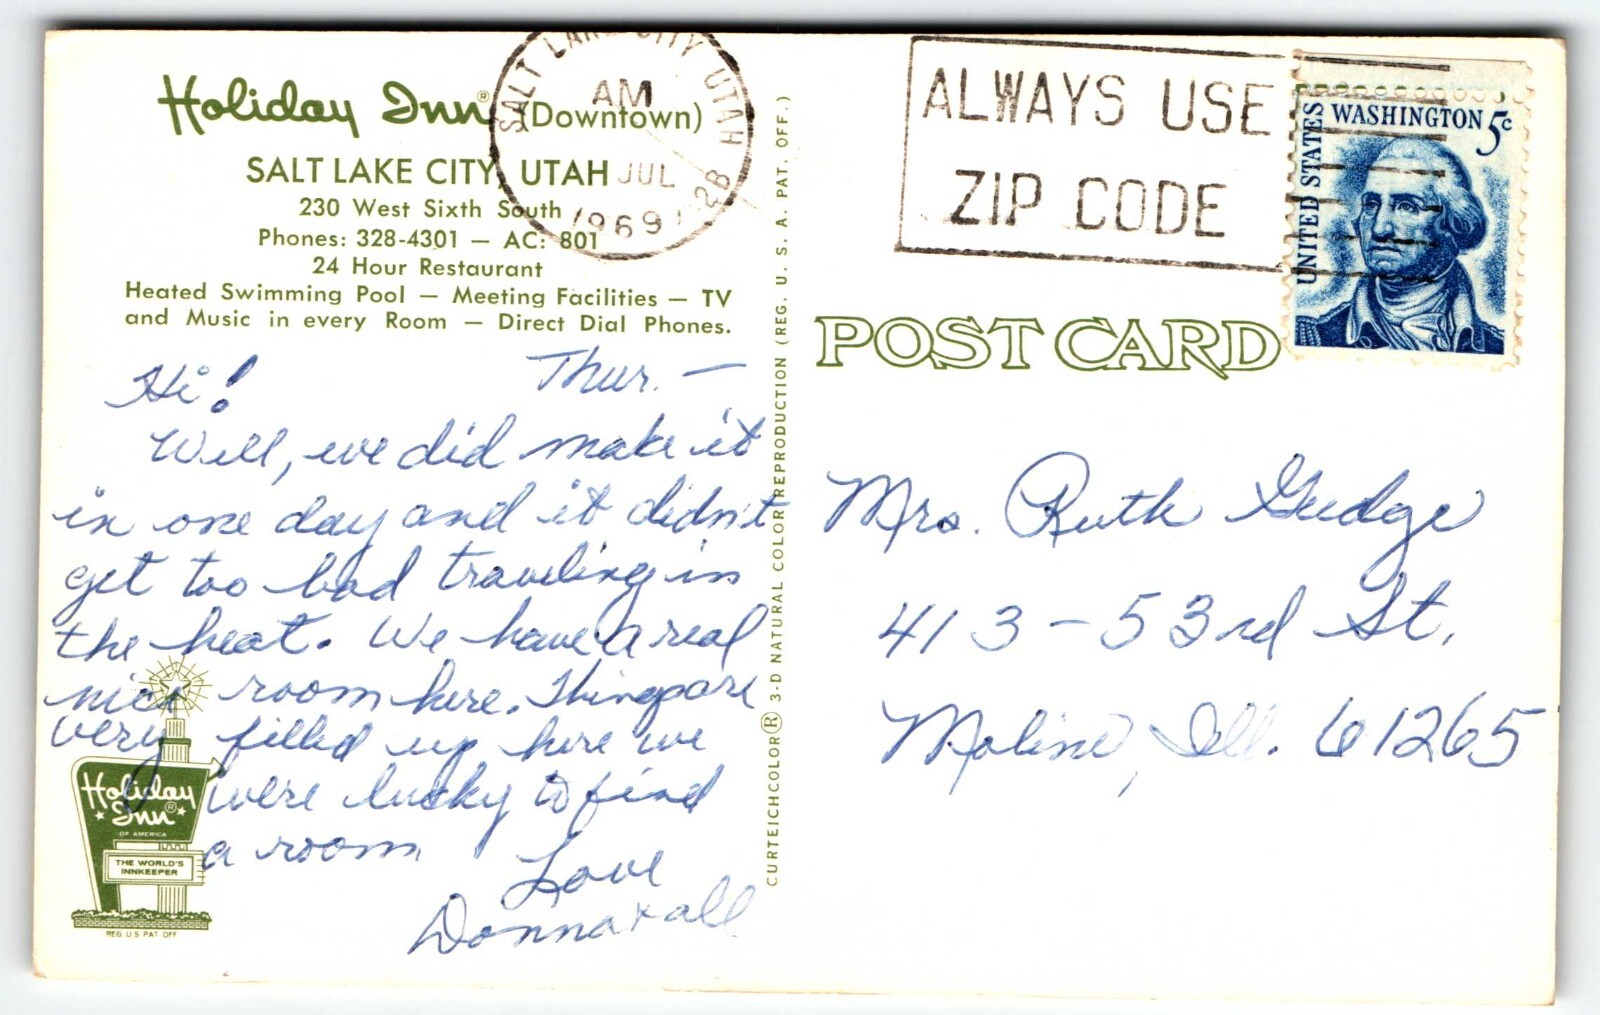 Holiday Inn® (Downtown)
SALT LAKE CITY, UTAH
230 West Sixth South
Phones: 328-4301 — AC: 801
24 Hour Restaurant
Heated Swimming Pool — Meeting Facilities — TV
and Music in every Room — Direct Dial Phones.
SALT LAKE CITY UTAH
AM
JUL 28
1969
ALWAYS USE
ZIP CODE
UNITED STATES
WASHINGTON 5c
POST CARD
Thur. —
Hi!
Well, we did make it
in one day and it didn't
get too bad traveling in
the heat. We have a real
nice room here. Things are
very filled up here we
were lucky to find
a room
Love
Donna & all
Holiday
Inn®
OF AMERICA
THE WORLD'S
INNKEEPER
REG. U.S. PAT. OFF.
CURTEICHCOLOR® 3-D NATURAL COLOR REPRODUCTION (REG. U. S. A. PAT. OFF.)
Mrs. Ruth Gudge
413 – 53rd St.
Moline, Ill. 61265